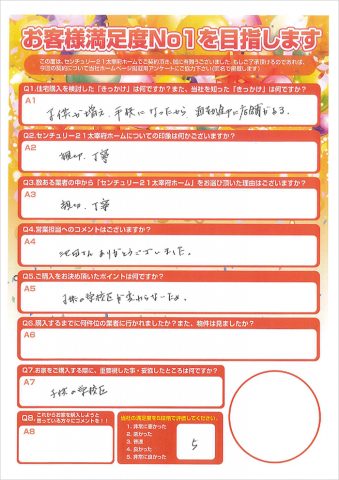 お客様満足度No1を目指します
この度は、センチュリー21太宰府ホームでご契約頂き、誠に有難うございました。もしご了承頂けるのであれば、
今回の契約について当社ホームページ掲載用アンケートにご協力下さい(匿名で掲載します)
Q1.住宅購入を検討した「きっかけ」は何ですか?また、当社を知った「きっかけ」は何ですか?
A1
子供が増え、手狭になったから 通勤途中に店舗がある。
Q2.センチュリー21太宰府ホームについての印象は何かございますか?
A2
親切、丁寧
Q3.数ある業者の中から「センチュリー21太宰府ホーム」をお選び頂いた理由はございますか?
A3
親切、丁寧
Q4.営業担当へのコメントはございますか?
A4
ありがとうございました。
Q5.ご購入をお決め頂いたポイントは何ですか?
A5
子供の学校区が変わらないため。
Q6.購入するまでに何件位の業者に行かれましたか?また、物件は見ましたか?
A6
Q7.お家をご購入する際に、重要視した事・妥協したところは何ですか?
A7
子供の学校区
Q8.これからお家を購入しようと
思っている方々にコメントを!!
A8
当社の満足度を5段階で評価してください。
1. 非常に悪かった
2. 悪かった
3. 普通
4. 良かった
5. 非常に良かった
5